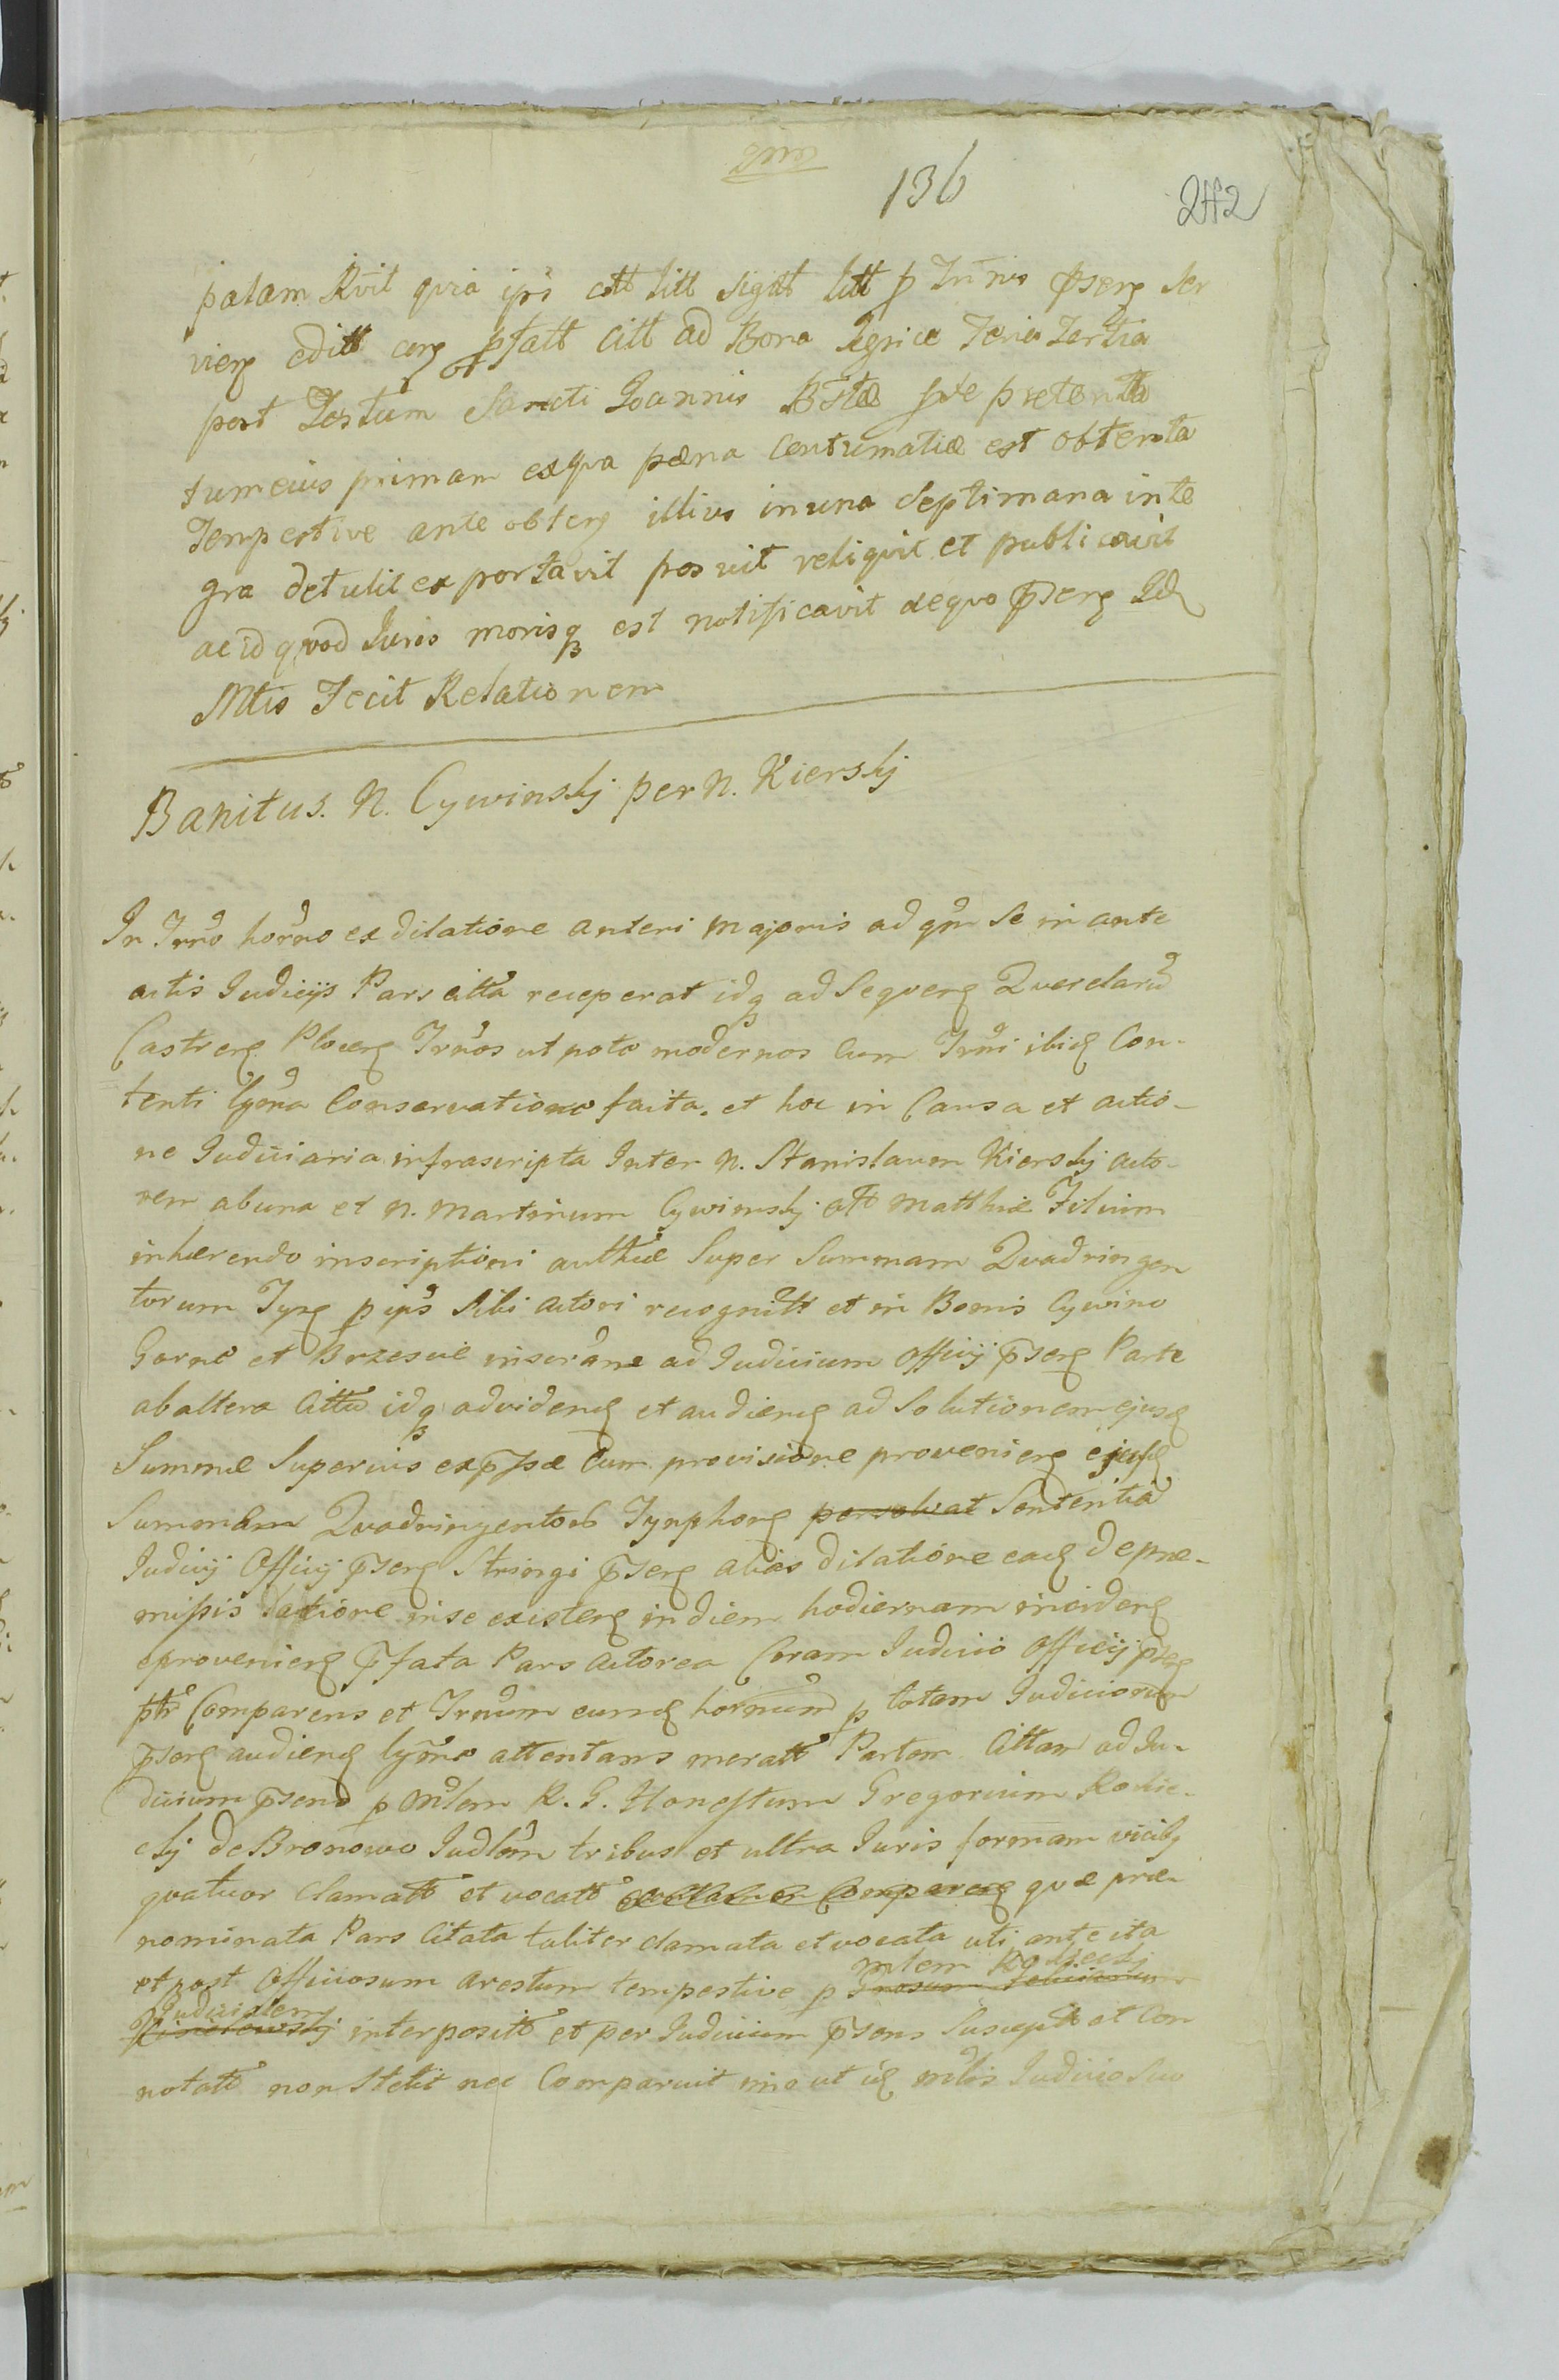 136
palam Rvit qvia ips citt litt sigitt litt p Trnis pserq ser
vierq editt corq pfatt citt ad Bona Regnice Feria Tertia
post Festum Sancti Joannis Btæ pte pretenta
tumeius primam exqva pæna Contumatiæ est obtenta
Tempestive ante obterq illius inuna septimana inte
gra detulit exportavit posuit reliqvit et publicavit
ac id qvod Iuris morisq est notificavit deqvo pserq
Mtis Fecit Relationem
Banitus. N. Cywinskj per N. Kierskj
In Trno horno ex dilatione anteri majoris ad qm Se in ante
actis Judicijs Pars citta receperat idq ad Seqverq Querelaru
Castrerq Plocerq Trnos ut poto modernos Cum Trni ibiq Con-
tenti lyma Conservatione facta. et hoc in Causa et actio-
ne Judiciaria infrascripta Inter N. Stanislaum Kierskj acto-
rem abuna et N. Martinum Cywinskj att Matthiæ Filium
inhærendo inscriptioni autthæ Super Summam Quadringen
torum Tyrq p ips Sibi actori recognitt et in Bonis Cywino
Gorne et Brzescie inserane ad Judicium Officij pserq Parte
abaltera Citta idq advidenq et audienq ad Solutionem ejusq
Summæ Superius expssæ Cum provisione provenierq ejusq
Summam Quadringentorū Tynphorq persolvat Sententia
Judicij Officij pserq Stringi pserq alias dilatione eaq de præ-
missis datione inse existerq indiem hodiernam inciderq
eprovenierq pfata Pars Actorea Coram Judicio Officij pserq
ptr Comparens et Trnum eunq hornum p totam Judiciorum
pserq audienq lymo attentans meratt Partem Cittam ad Ju-
dicium psens p Mlem R. G. Honestum Gregorium Rockic-
kj de Bronowo Judlem tribus et ultra Juris formam vicibq
qvatuor Clamatt et vocatt qvæ præ-
nominata Pars Citata taliter clamata et vocata uti ante ita
mlem Rockickj
et post Officiosum arestum tempestive p
Judicialem
interpositt et per Judicium psens Susceptt et Con
notatt non Stetit nec Comparuit imo ut iq mlis Judicio Suo